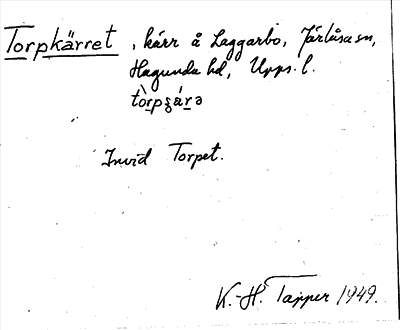 Torpkärret, kärr å Laggarbo, Järlåsa sn,
Hagunda hd, Upps. l.
tòrpʂára
Invid Torpet.
K.-H. Tapper 1949.